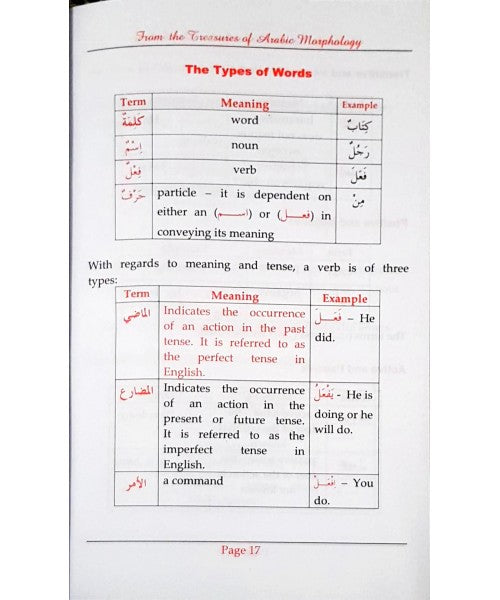 From the Treasures of Arabic Morphology
The Types of Words
Term Meaning Example
كَلِمَةٌ word كِتَابٌ
اِسْمٌ noun رَجُلٌ
فِعْلٌ verb فَعَلَ
حَرْفٌ particle – it is dependent on مِنْ
either an (اســم) or (فعــل) in
conveying its meaning
With regards to meaning and tense, a verb is of three
types:
Term Meaning Example
الماضي Indicates the occurrence فَعَــلَ – He
of an action in the past did.
tense. It is referred to as
the perfect tense in
English.
المضارع Indicates the occurrence يَفْعَلُ - He is
of an action in the doing or he
present or future tense. will do.
It is referred to as the
imperfect tense in
English.
الأمر a command اِفْعَــلْ – You
do.
Page 17